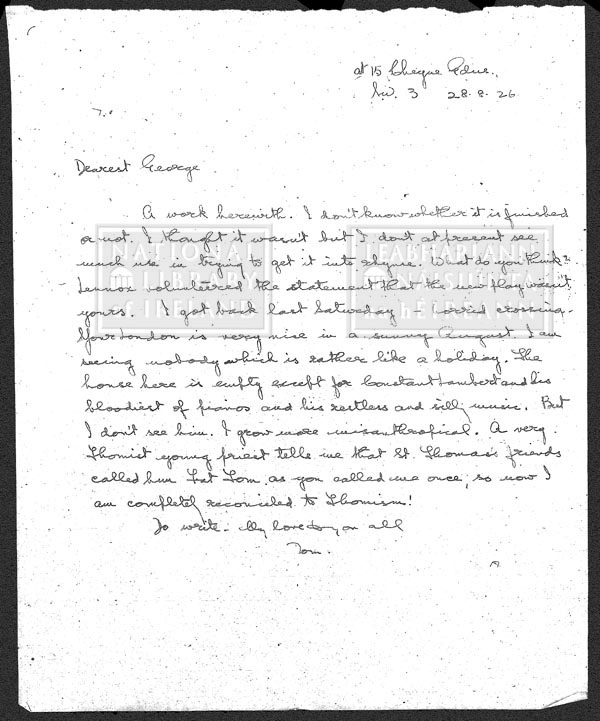 at 15 Cheyne Gdns.,
S.W. 3 28.8.26
Dearest George
A work herewith. I don't know whether it is finished
or not. I thought it wasn't but I don't at present see
much use in trying to get it into rhyme. What do you think?
Lennox volunteered the statement that the new play wasn't
yours. I got back last Saturday - orrid crossing.
Your London is very nice in a sunny August. I am
seeing nobody which is rather like a holiday. The
house here is empty except for Constant Lambert and his
bloodiest of pianos and his restless and silly music. But
I don't see him. I grow more misanthropical. A very
Thomist young priest tells me that St. Thomas's friends
called him Fat Tom, as you called me once; so now I
am completely reconciled to Thomism!
Do write. My love to you all
Tom.
NATIONAL
LIBRARY
of IRELAND
LEABHARLANN
NÁISIÚNTA
na hÉIREANN